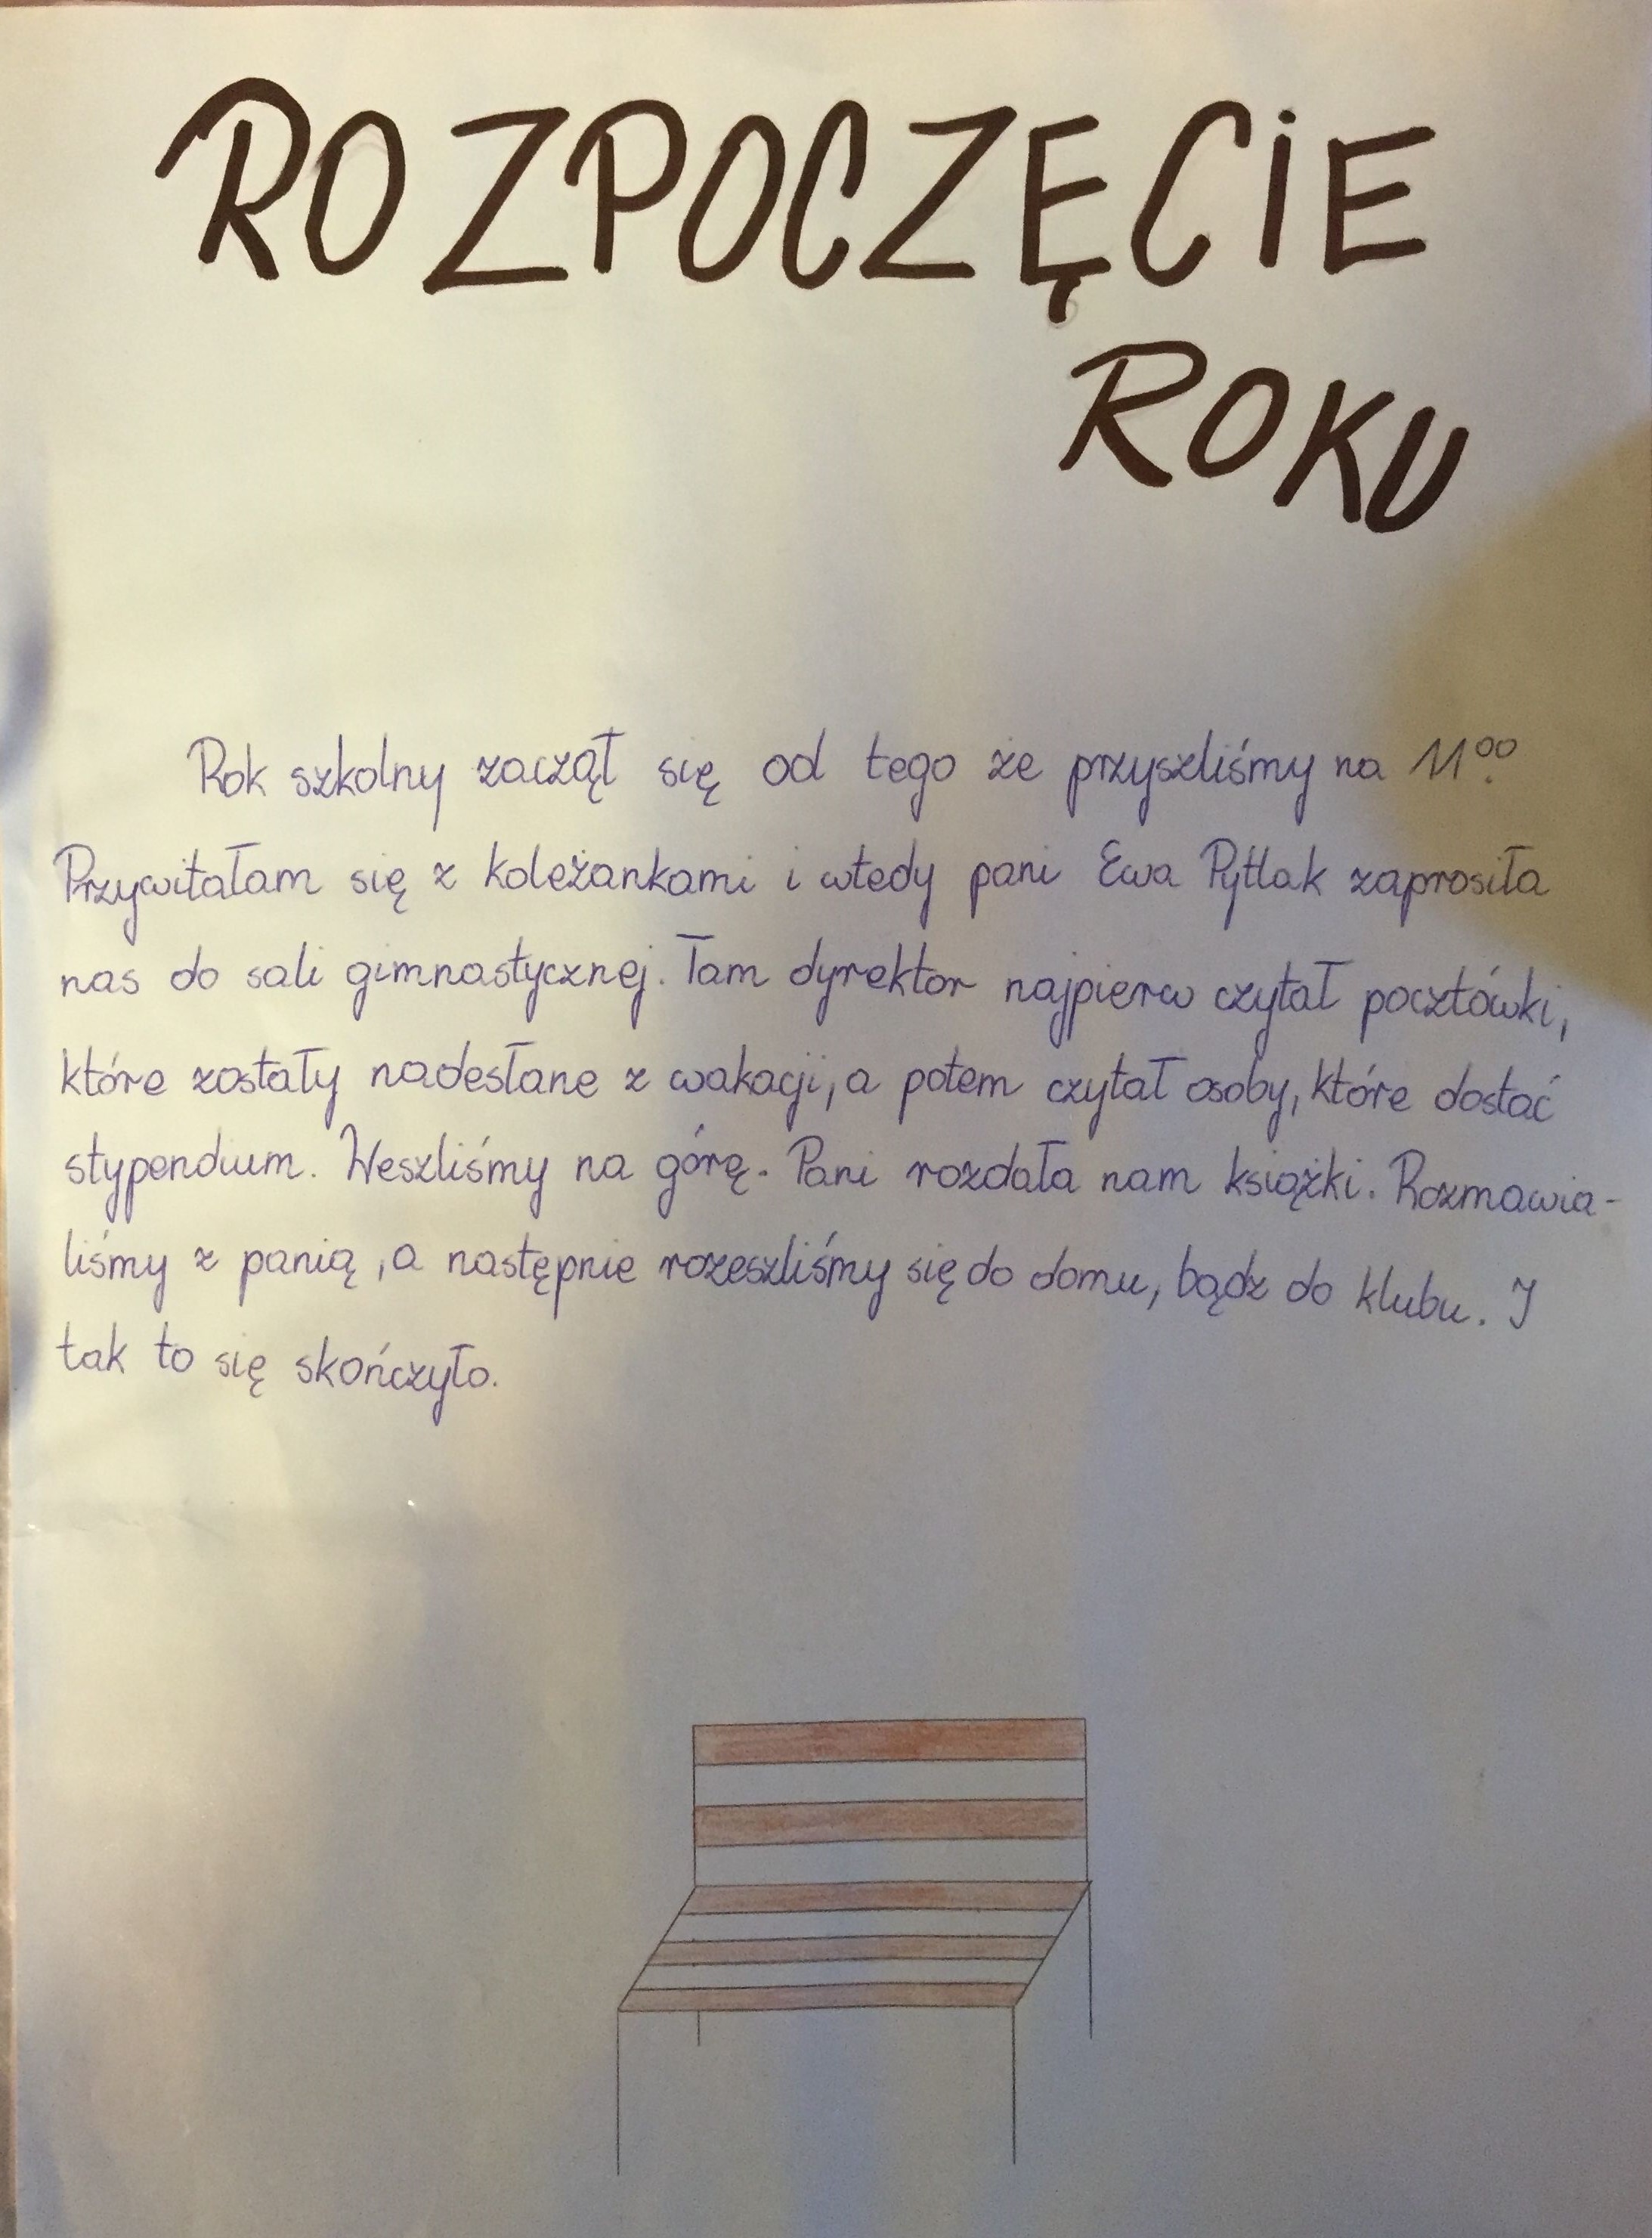 ROZPOCZĘCIE
ROKU
Rok szkolny zaczął się od tego że przyszliśmy na 11⁰⁰.
Przywitałam się z koleżankami i wtedy pani Ewa Pytlak zaprosiła
nas do sali gimnastycznej. Tam dyrektor najpierw czytał pocztówki,
które zostały nadesłane z wakacji, a potem czytał osoby, które dostać
stypendium. Weszliśmy na górę. Pani rozdała nam książki. Rozmawia-
liśmy z panią, a następnie rozeszliśmy się do domu, bądz do klubu. I
tak to się skończyło.